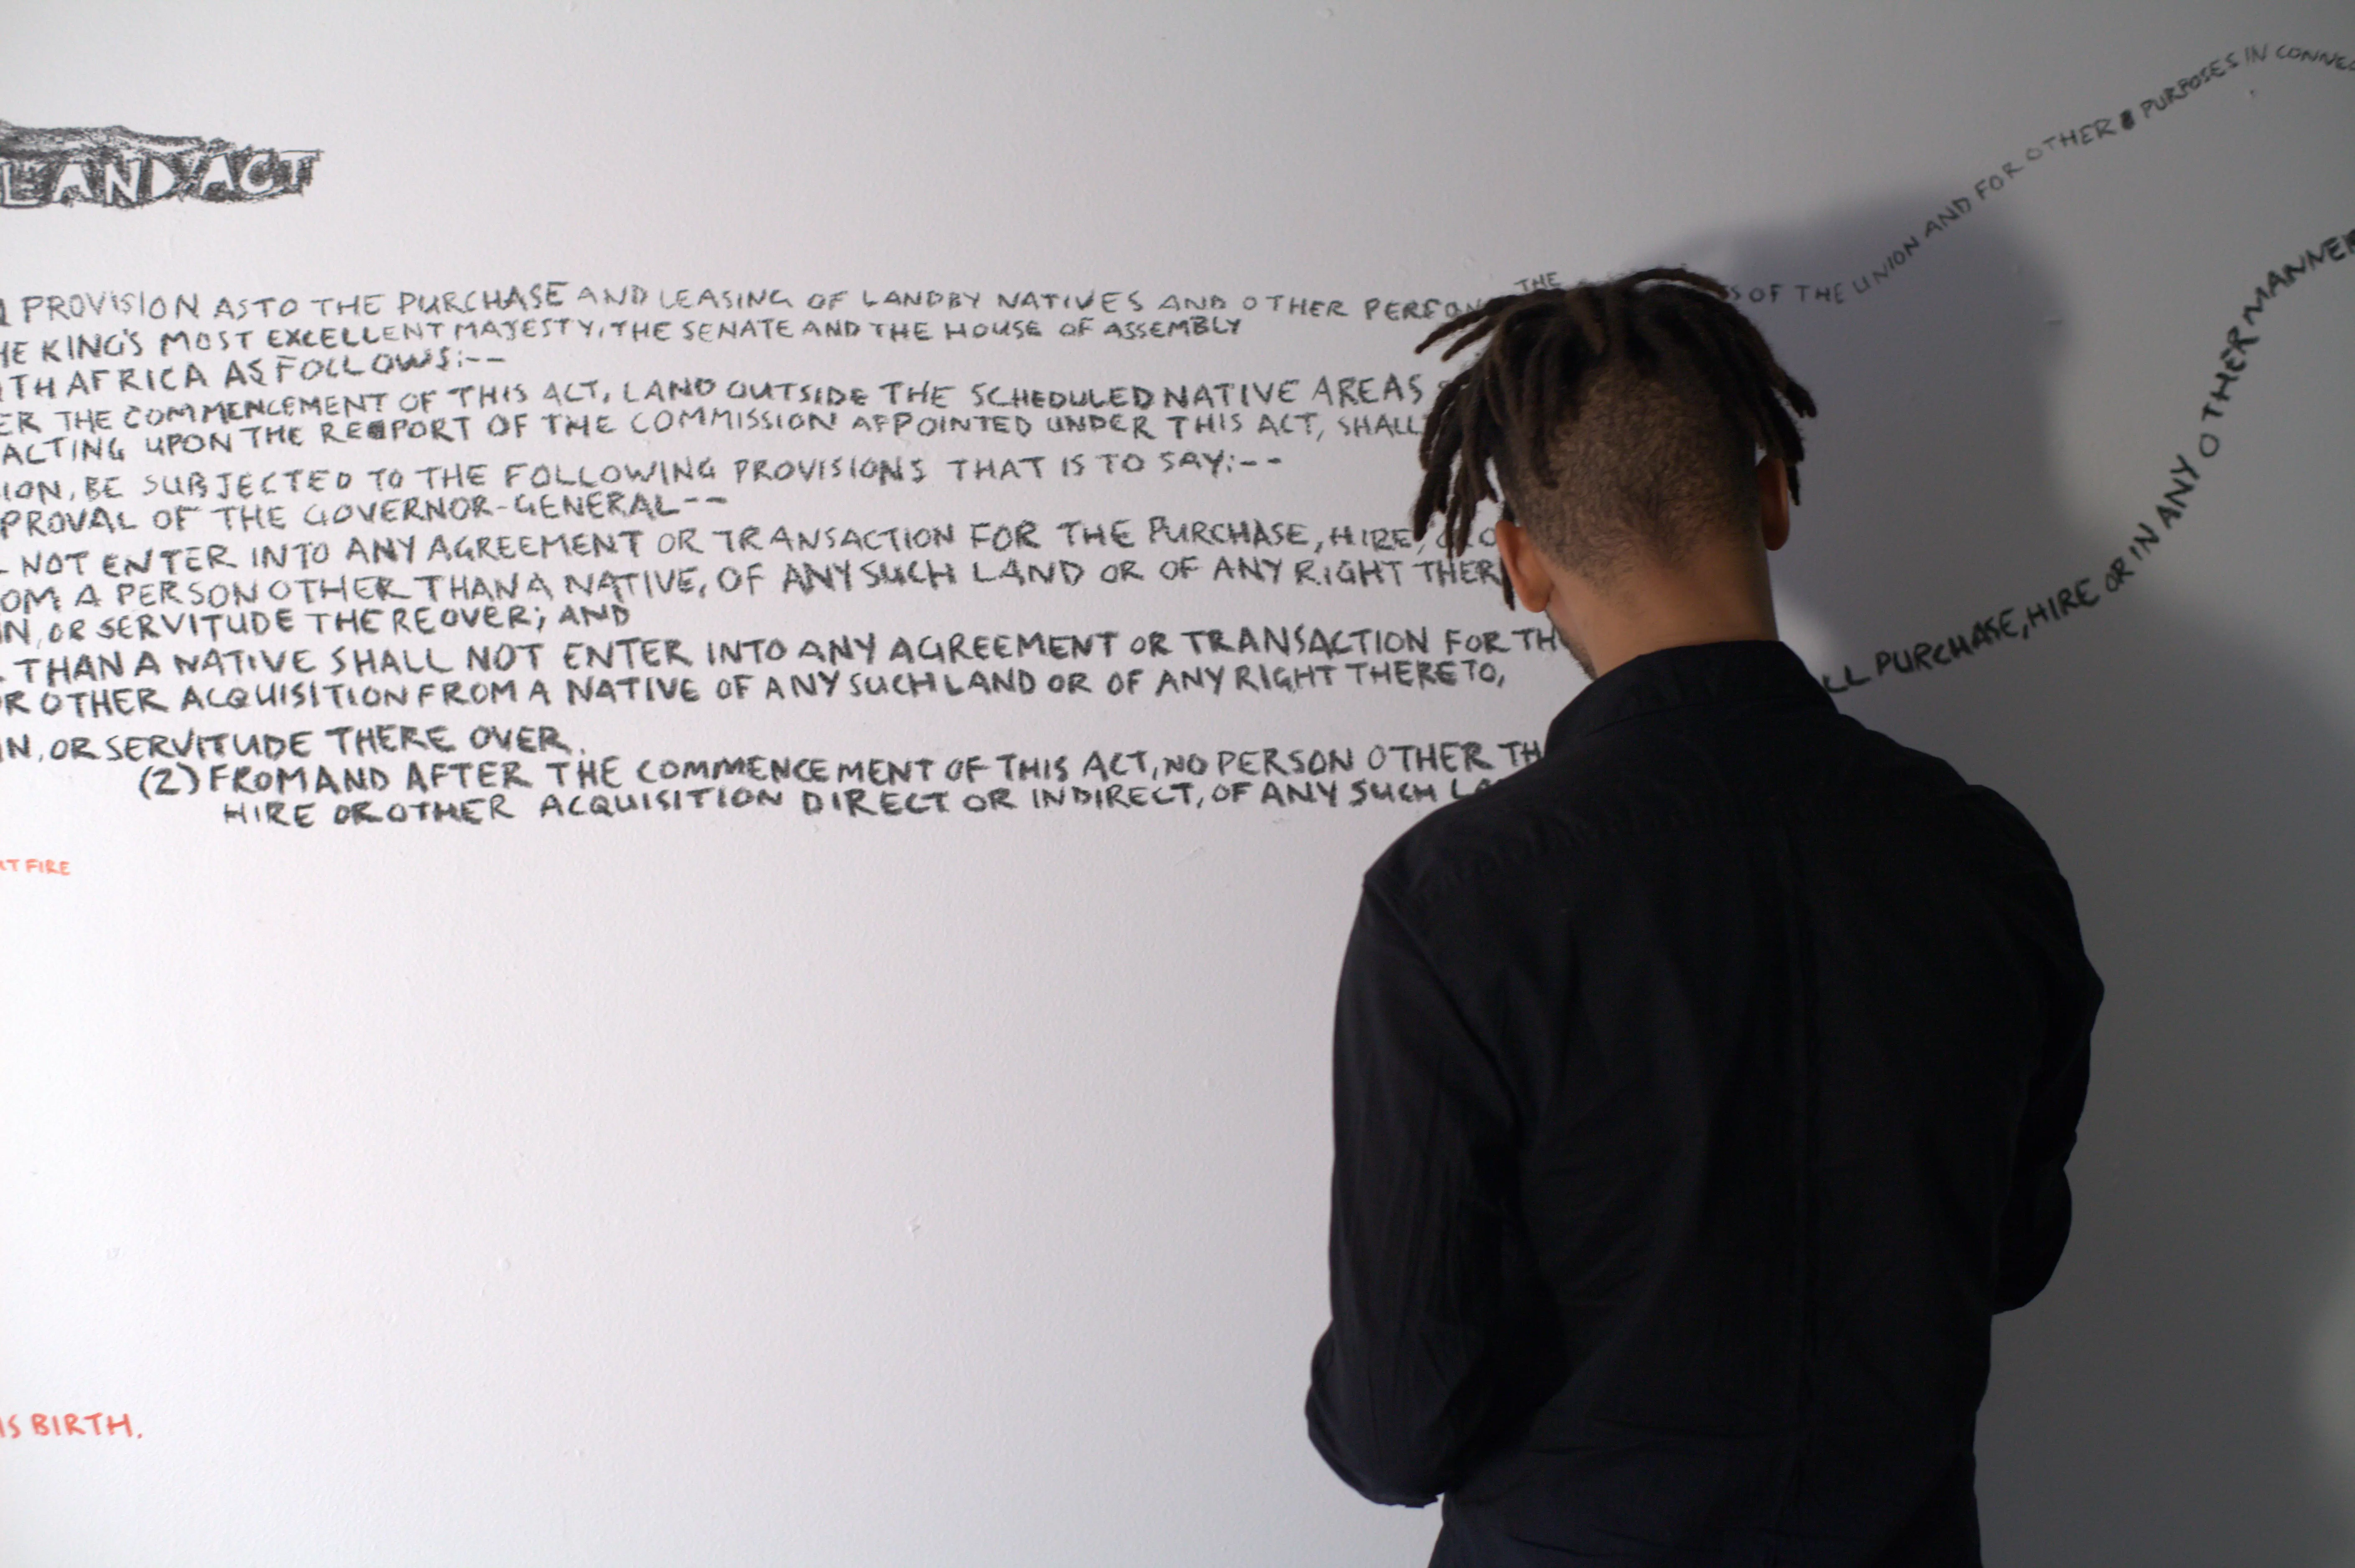 LAND ACT
PROVISION AS TO THE PURCHASE AND LEASING OF LAND BY NATIVES AND OTHER PERSON THE S OF THE UNION AND FOR OTHER PURPOSES IN CONNEC
HE KING'S MOST EXCELLENT MAJESTY, THE SENATE AND THE HOUSE OF ASSEMBLY
TH AFRICA AS FOLLOWS:--
ER THE COMMENCEMENT OF THIS ACT, LAND OUTSIDE THE SCHEDULED NATIVE AREAS
ACTING UPON THE REPORT OF THE COMMISSION APPOINTED UNDER THIS ACT, SHALL
ION, BE SUBJECTED TO THE FOLLOWING PROVISIONS THAT IS TO SAY:--
PROVAL OF THE GOVERNOR-GENERAL--
NOT ENTER INTO ANY AGREEMENT OR TRANSACTION FOR THE PURCHASE, HIRE, O
OM A PERSON OTHER THAN A NATIVE, OF ANY SUCH LAND OR OF ANY RIGHT THER
IN, OR SERVITUDE THEREOVER; AND
THAN A NATIVE SHALL NOT ENTER INTO ANY AGREEMENT OR TRANSACTION FOR TH
R OTHER ACQUISITION FROM A NATIVE OF ANY SUCH LAND OR OF ANY RIGHT THERETO,
IN, OR SERVITUDE THERE OVER.
(2) FROM AND AFTER THE COMMENCEMENT OF THIS ACT, NO PERSON OTHER TH LL PURCHASE, HIRE OR IN ANY OTHER MANNER
HIRE OR OTHER ACQUISITION DIRECT OR INDIRECT, OF ANY SUCH LA
T FIRE
IS BIRTH.